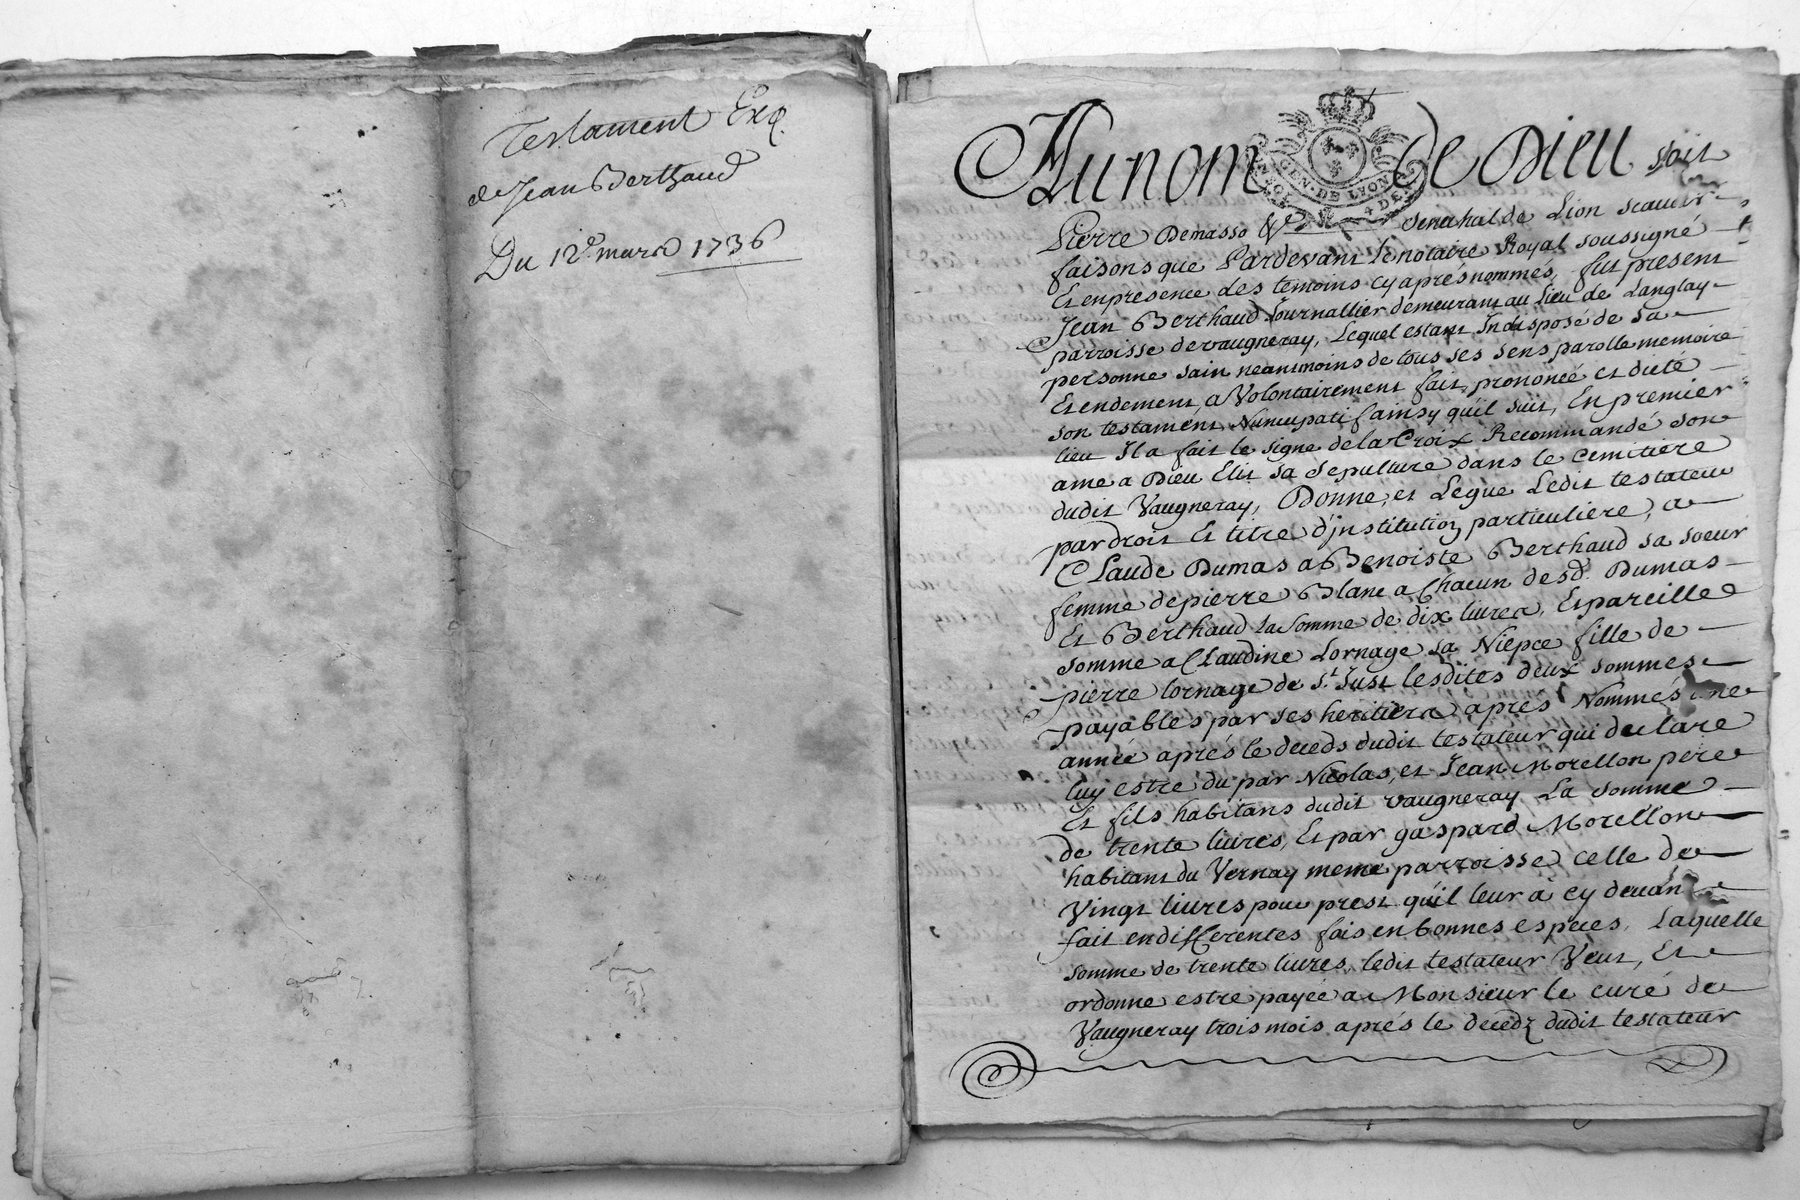 Testament Exp.
de Jean Berthaud
Du 12e. mars 1736
Au nom de Dieu soit
GEN. DE LYON
4 DE
Pierre Demasso Senechal de Lion scavoir
faisons que Pardevant le notaire Royal soussigné
Et enpresence des temoins cy aprés nommés, fut present
Jean Berthaud Journallier demeurant au lieu de Langlay
parroisse devaugneray, Lequel estant Indisposé de sa
personne sain neantmoins de tous ses sens parolle memoire
Et endement, a Volontairement fait, prononcé et dicté
son testament Nuncupatif ainsy qu'il suit, En premier
lieu Il a fait le signe de la Croix Recommandé son
ame a Dieu Elit sa Sepulture dans le Cemitiere
dudit Vaugneray, Donne, et Legue Ledit testateur
par droit Et titre d'institution particuliere, a
Claude Dumas a Benoiste Berthaud sa soeur
femme de pierre Blanc a Chacun desd. Dumas
Et Berthaud la somme de dix livres, Et pareille
somme a Claudine Lornage sa Niepce fille de
pierre lornage de St. Just lesdites deux sommes
payables par ses heritiers aprés Nommés une
année aprés le deceds dudit testateur qui declare
luy estre du par Nicolas, et Jean Morellon pere
Et fils habitans dudit vaugneray La somme
de trente livres, Et par gaspard Morellon
habitant du Vernay meme parroisse celle de
Vingt livres pour prest qu'il leur à cy devan
fait endifferentes fois en bonnes especes, Laquelle
somme de trente livres, ledit testateur Veut, Et
ordonne estre payée a Monsieur le curé de
Vaugneray trois mois aprés le decedz dudit testateur